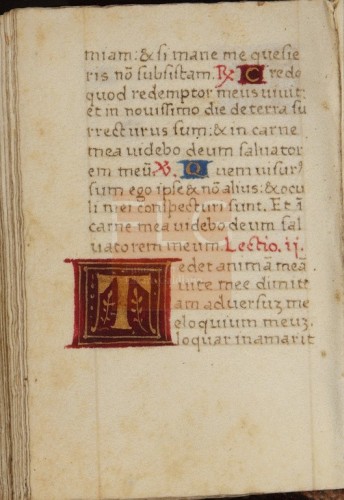 miam: & si mane me quesie
ris nō subsistam. ℟ Credo
quod redemptor meus vivit:
et in novissimo die de terra su
rrecturus sum: & in carne
mea videbo deum salvator
em meū. ℣. Quem visur⁹
sum ego ipse & nō alius: & ocu
li mei conspecturi sunt. Et ī
carne mea videbo deum sal
vatorem meum. Lectio. ij.
Tedet animā meā
vite mee dimitt
am adversuz me
eloquium meuz.
loquar in amarit